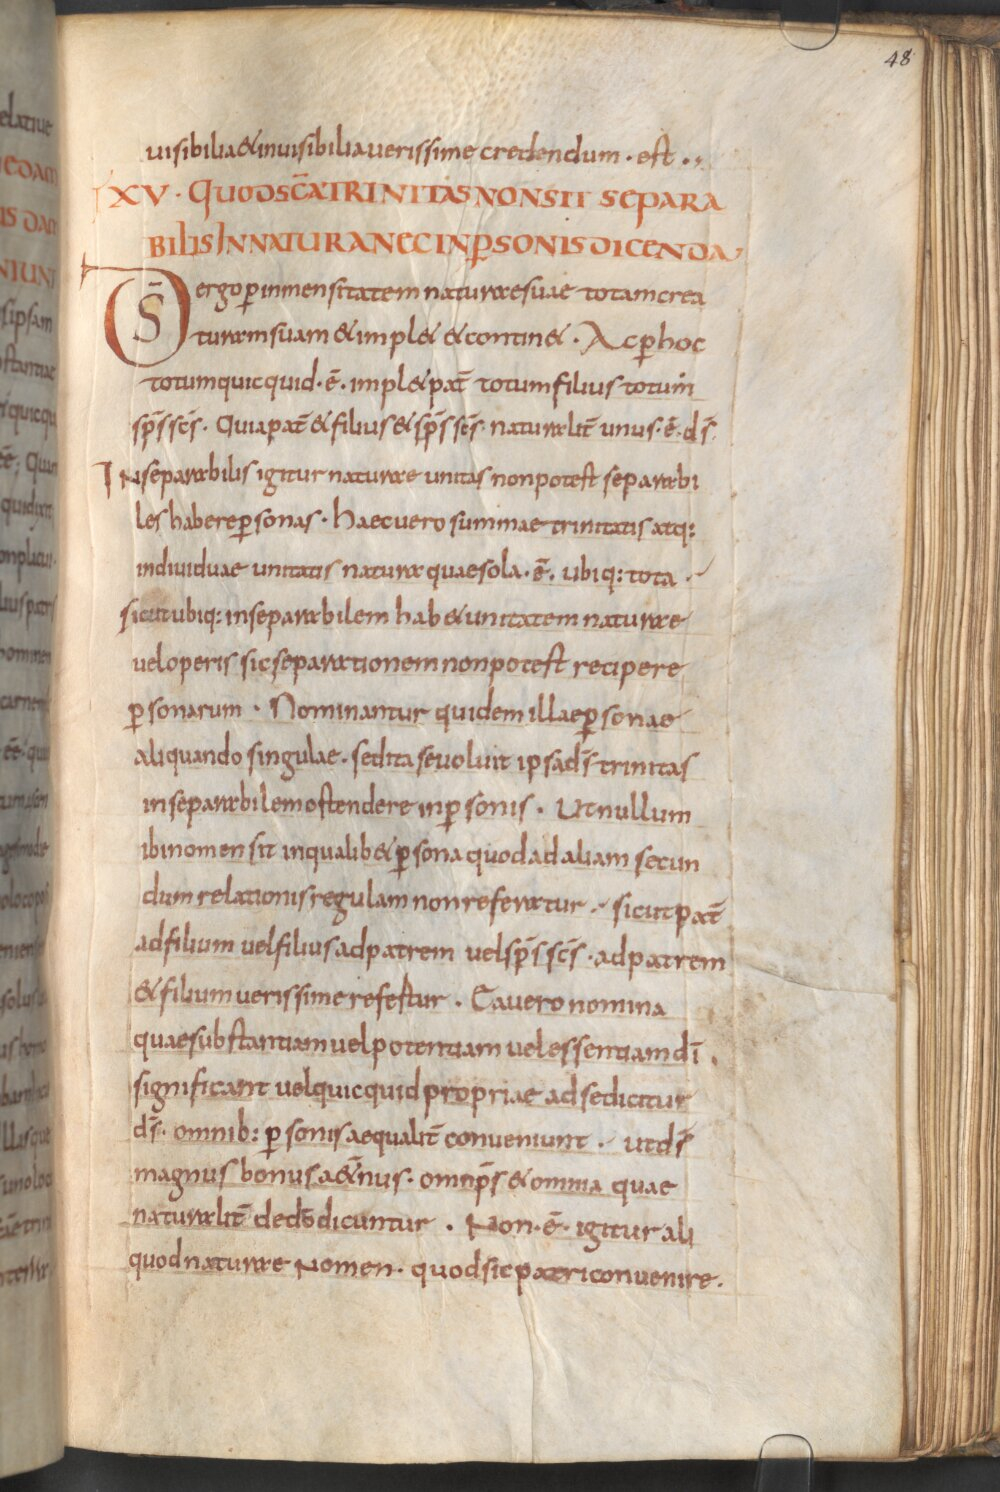 48
uisibilia & inuisibilia uerissime credendum · est ·,,
XV · QUOD SC̄A TRINITAS NON SIT SEPARA
BILIS IN NATURA NEC IN PSONIS DICENDA
D̄S ergo p inmensitatem naturae suae totam crea
turam suam & impl& & contin& · Ac p hoc
totum quicquid · ē · impl& pat̄ totum filius totum
sp̄s sc̄s · Quia pat̄ & filius & sp̄s sc̄s naturalit̄ unus · ē · d̄s
Inseparabilis igitur naturae unitas non potest separabi
les habere psonas · Haec uero summae trinitatis atq:
indiuiduae unitatis natura quae sola · ē · ubiq: tota ·
sicut ubiq: inseparabilem hab& unitatem naturae
uel operis sic separationem non potest recipere
psonarum · Nominantur quidem illae psonae
aliquando singulae · sed ita se uoluit ipsa d̄s trinitas
inseparabilem ostendere in psonis · Ut nullum
ibi nomen sit in qualib& psona quod ad aliam secun
dum relationis regulam non referatur · sicut pat̄
ad filium uel filius ad patrem uel sp̄s sc̄s · ad patrem
& filium uerissime refertur · Ea uero nomina
quae substantiam uel potentiam uel essentiam dī ·
significant uel quicquid propriae ad se dicitur
d̄s · omnib: psonis aequalit̄ conueniunt · ut d̄s
magnus bonus a&̄nus · omnip̄s & omnia quae
naturalit̄ de dō dicuntur · Non · ē · igitur ali
quod naturae nomen · quod sic patri conuenire ·